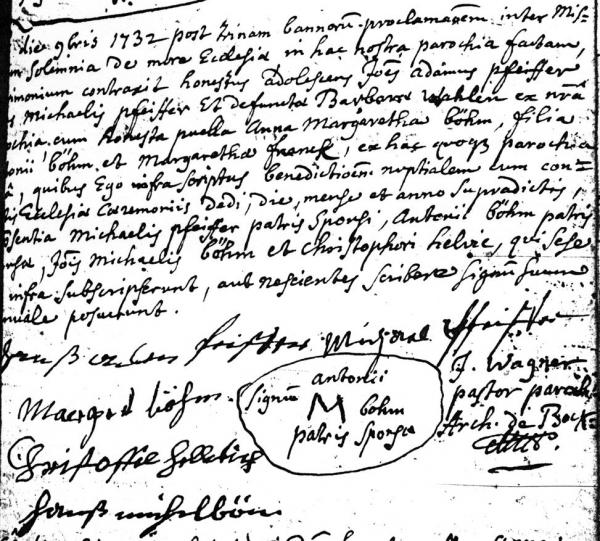 die 9bris 1732 post trinam bannorũ proclamaõnem inter Mis=
solemnia de more Ecclesiæ in hac nostra parochia factam,
imonium contraxit honestus adolescens Joẽs adamus pfeiffer
Michaelis pfeiffer Et defunctæ Barbaræ ex nrã
ochia cum honesta puella Anna Margaretha böhm, filia
tonii böhm et Margarethæ franck, ex hac quoqȝ parochia
quibus Ego infra scriptus benedictioẽm nuptialem cum con=
tis Ecclesiæ Cæremoniis dedi, die, mense et anno supradictis,
æsentia Michaelis pfeiffer patris Sponsi, Antonii böhm patris
onsæ, Joẽs Michaelis böhm et Christophori helvic, qui sese
infra subscripserunt, aut nescientes scribere signũ suum
nuale posuerunt.
hanß adam feiffer Michael Pfeiffer
Maergred böhm.
signũ antonii
M böhm
patris sponsæ
J. Wagner
pastor paroch
Arch. de Bock=
Christoffel helwich
hanß michel bön